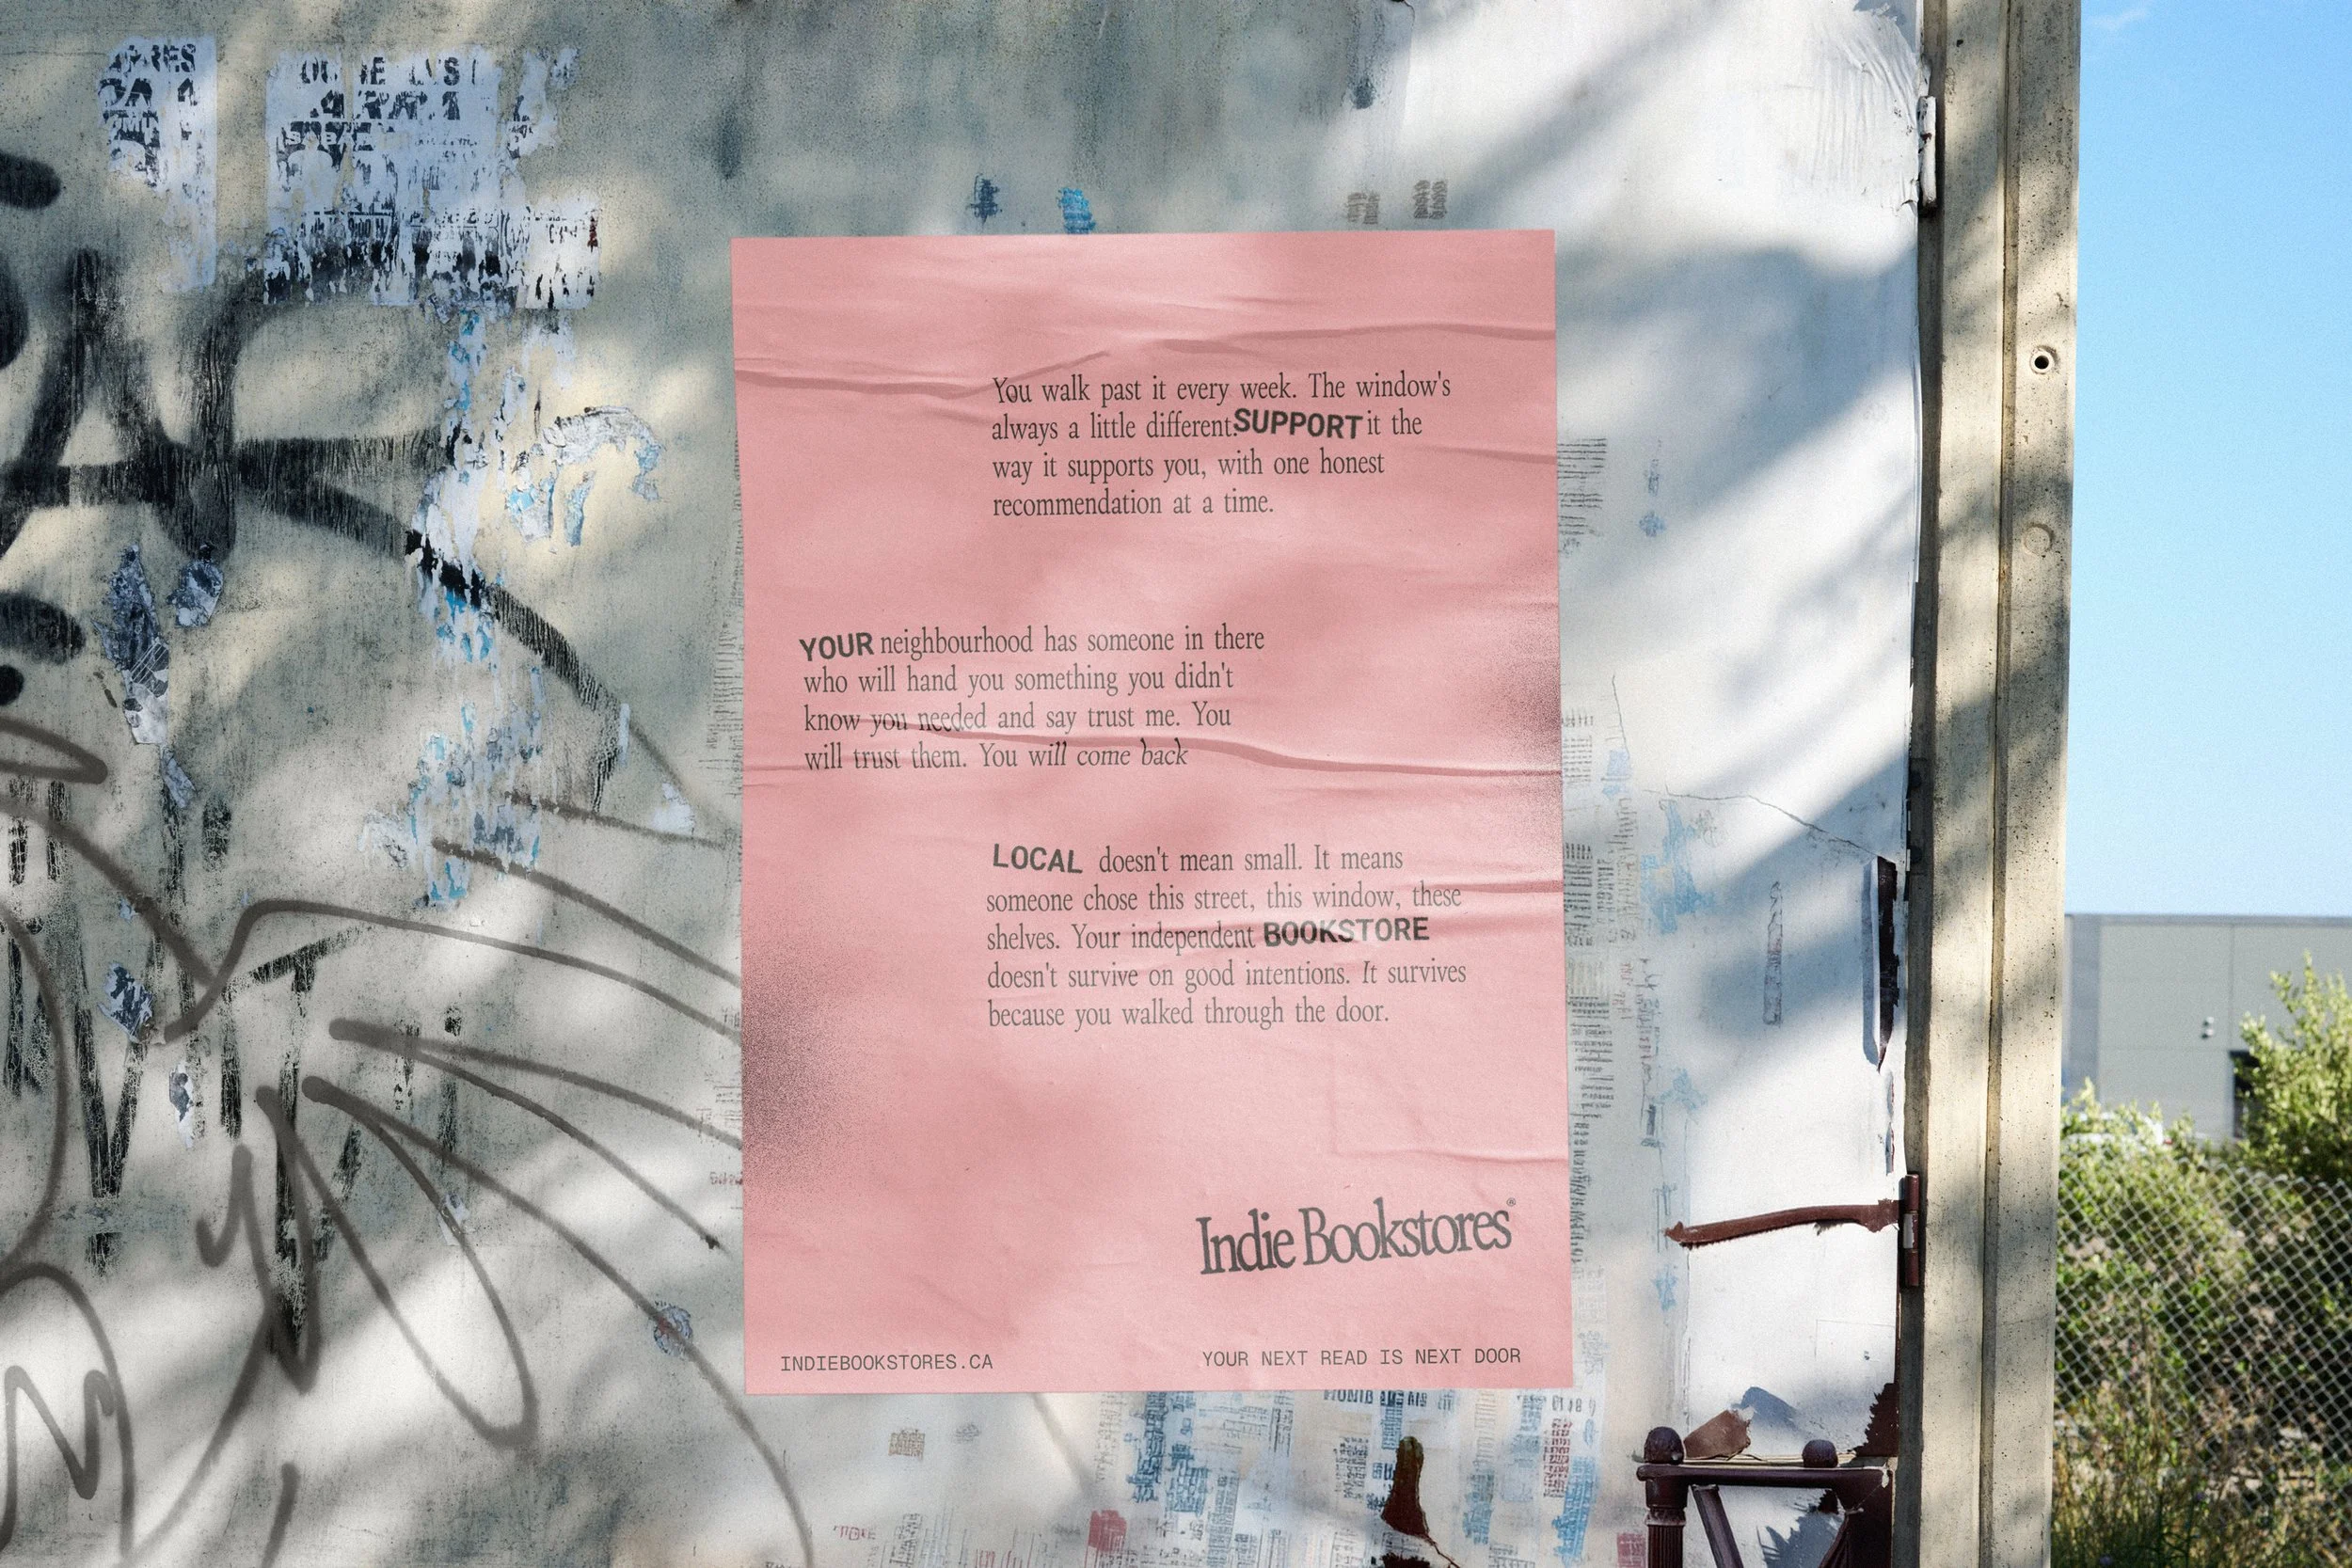 You walk past it every week. The window's
always a little different. SUPPORT it the
way it supports you, with one honest
recommendation at a time.
YOUR neighbourhood has someone in there
who will hand you something you didn't
know you needed and say trust me. You
will trust them. You will come back
LOCAL doesn't mean small. It means
someone chose this street, this window, these
shelves. Your independent BOOKSTORE
doesn't survive on good intentions. It survives
because you walked through the door.
Indie Bookstores®
INDIEBOOKSTORES.CA
YOUR NEXT READ IS NEXT DOOR